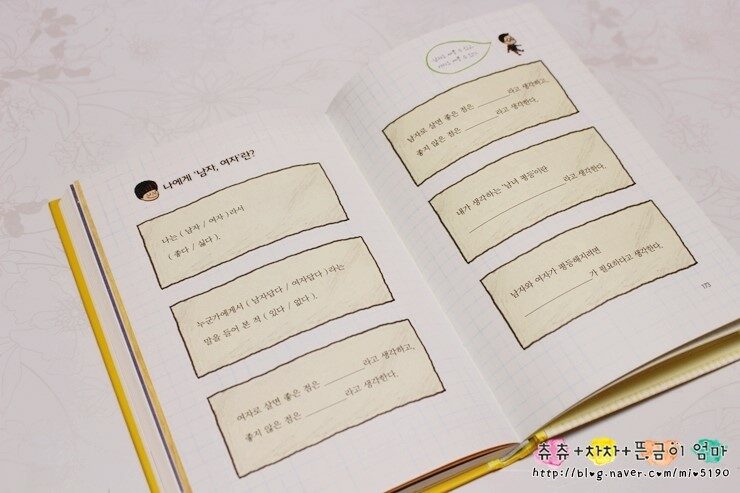 나에게 '남자, 여자'란?
나는 ( 남자 / 여자 )라서
( 좋다 / 싫다 ).
누군가에게서 ( 남자답다 / 여자답다 )라는
말을 들어 본 적 ( 있다 / 없다 ).
여자로 살면 좋은 점은 ________ 라고 생각하고,
좋지 않은 점은 ________ 라고 생각한다.
남자로 살면 좋은 점은 ________ 라고 생각하고,
좋지 않은 점은 ________ 라고 생각한다.
내가 생각하는 '남녀 평등'이란
________________ 라고 생각한다.
남자와 여자가 평등해지려면
________________ 가 필요하다고 생각한다.
173
츄츄+차차+뜬금이 엄마
http://blog.naver.com/mio5190